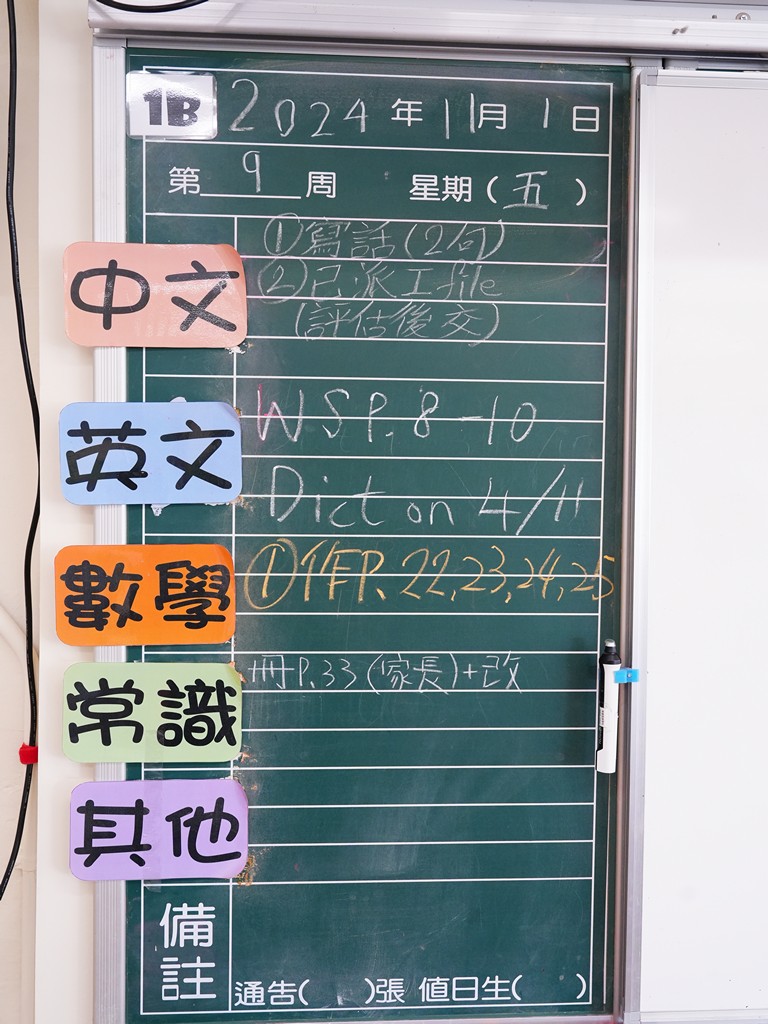 1B 2024年11月1日
第 9 周 星期(五)
中文 ①寫話(2句)
②已派工file
(評估後交)
英文 WS P.8-10
Dict on 4/11
數學 ①作P.22,23,24,25
常識 冊P.33(家長)+改
其他
備註 通告( )張 值日生( )